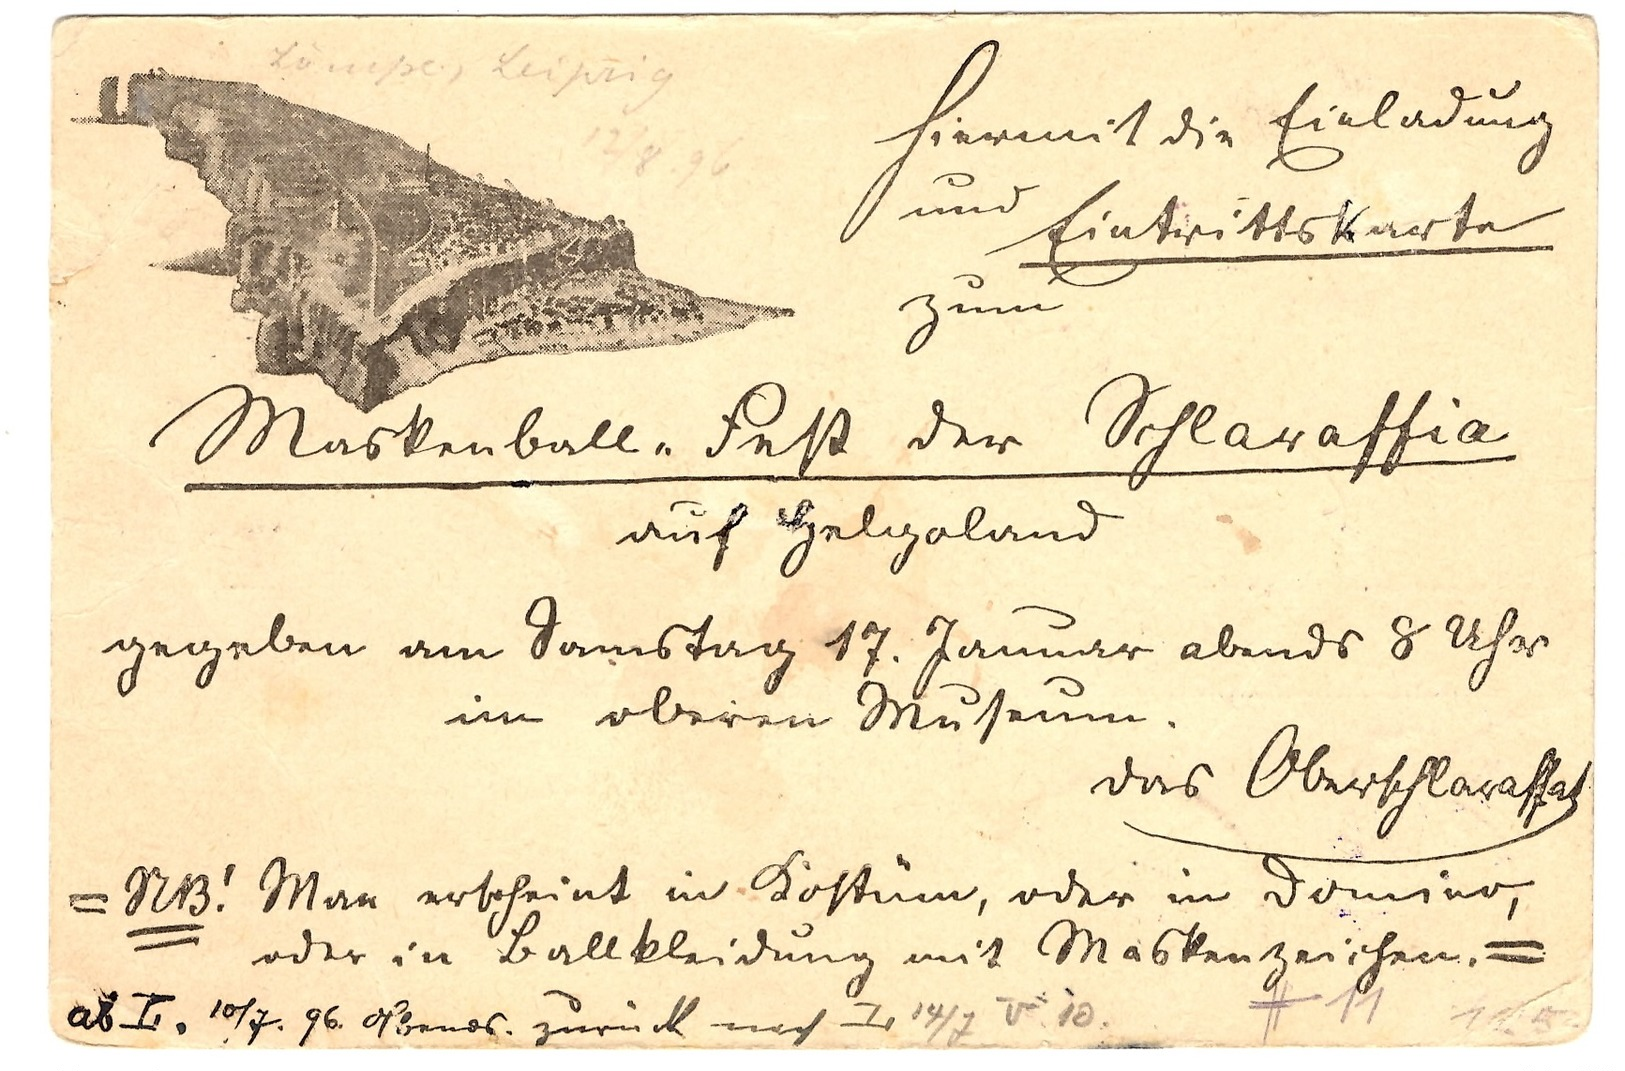 Lömpe, Leipzig
17/8.96
Hiermit die Einladung
und
Eintrittskarte
zum
Maskenball-Fest der Schlaraffia
auf Helgoland
gegeben am Samstag 17. Januar abends 8 Uhr
im oberen Museum.
das Oberschlaraffat
= NB! Man erscheint in Kostüm, oder in Domino,
oder in Ballkleidung mit Maskenzeichen. =
ab L. 10/7. 96. Abends. zurück nach L. 14/7 V 10.
# 11